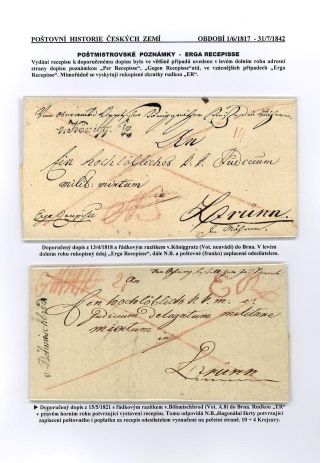 POŠTOVNÍ HISTORIE ČESKÝCH ZEMÍ OBDOBÍ 1/6/1817 - 31/7/1842
POŠTMISTROVSKÉ POZNÁMKY - ERGA RECEPISSE
Vydání recepisu k doporučenému dopisu bylo ve většině případů uvedeno v levém dolním rohu adresní
strany dopisu poznámkou „Per Recepisse“, „Gegen Recepisse“atd, ve vzácnějších případech „Erga
Recepisse“. Mimořádně se vyskytují rukopisné zkratky rudkou „ER“.
An
Ein hochlöbliches k.k. Judicium
milit: mixtum
in
Brünn
Doporučený dopis z 13/4/1818 s řádkovým razítkem v.Königgratz (Vot. neuvádí) do Brna. V levém
dolním rohu rukopisný údaj „Erga Recepisse“, dále N.B. a poštovné (franko) zaplacené odesilatelem.
v. Böhmischbrod
Ein hochlöbliches k.k. m.
Judicium delegatum militare
mixtum
Brünn
ER
► Doporučený dopis z 15/5/1821 s řádkovým razítkem v.Böhmischbrod (Vot. A.8) do Brna. Rudkou „ER“
v pravém horním rohu potvrzující vystavení recepisu. Tomu odpovídá N.B.,diagonální škrty potvrzující
zaplacení poštovného i poplatku za recepis odesilatelem vyznačené na pečetní straně. 10 + 4 Krejcary.